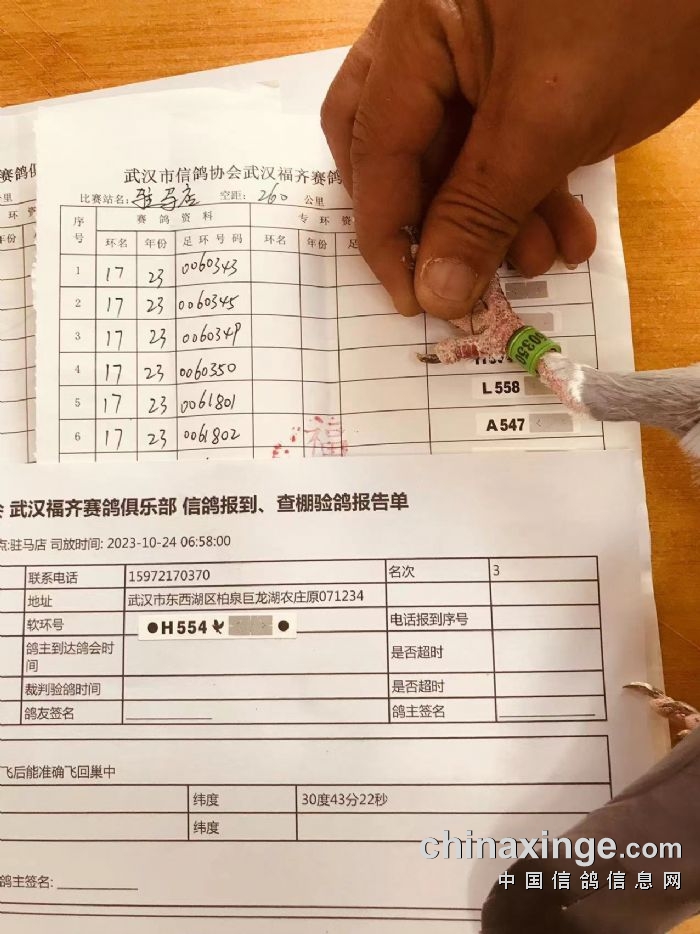 武汉市信鸽协会武汉福齐赛鸽
比赛站名: 驻马店 空距: 260 公里
序号 赛鸽资料 专环资
环名 年份 足环号码 环名 年份 足
1 17 23 0060343
2 17 23 0060345
3 17 23 0060349
4 17 23 0060350
5 17 23 0061801 L558
6 17 23 0061802 A547
福
60350
武汉福齐赛鸽俱乐部 信鸽报到、查棚验鸽报告单
点:驻马店 司放时间: 2023-10-24 06:58:00
联系电话 15972170370 名次 3
地址 武汉市东西湖区柏泉巨龙湖农庄原071234
软环号 H554 电话报到序号
鸽主到达鸽会时间 是否超时
裁判验鸽时间 是否超时
鸽友签名 鸽主签名
飞后能准确飞回巢中
纬度 30度43分22秒
纬度
鸽主签名:
chinaxinge.com
中国信鸽信息网